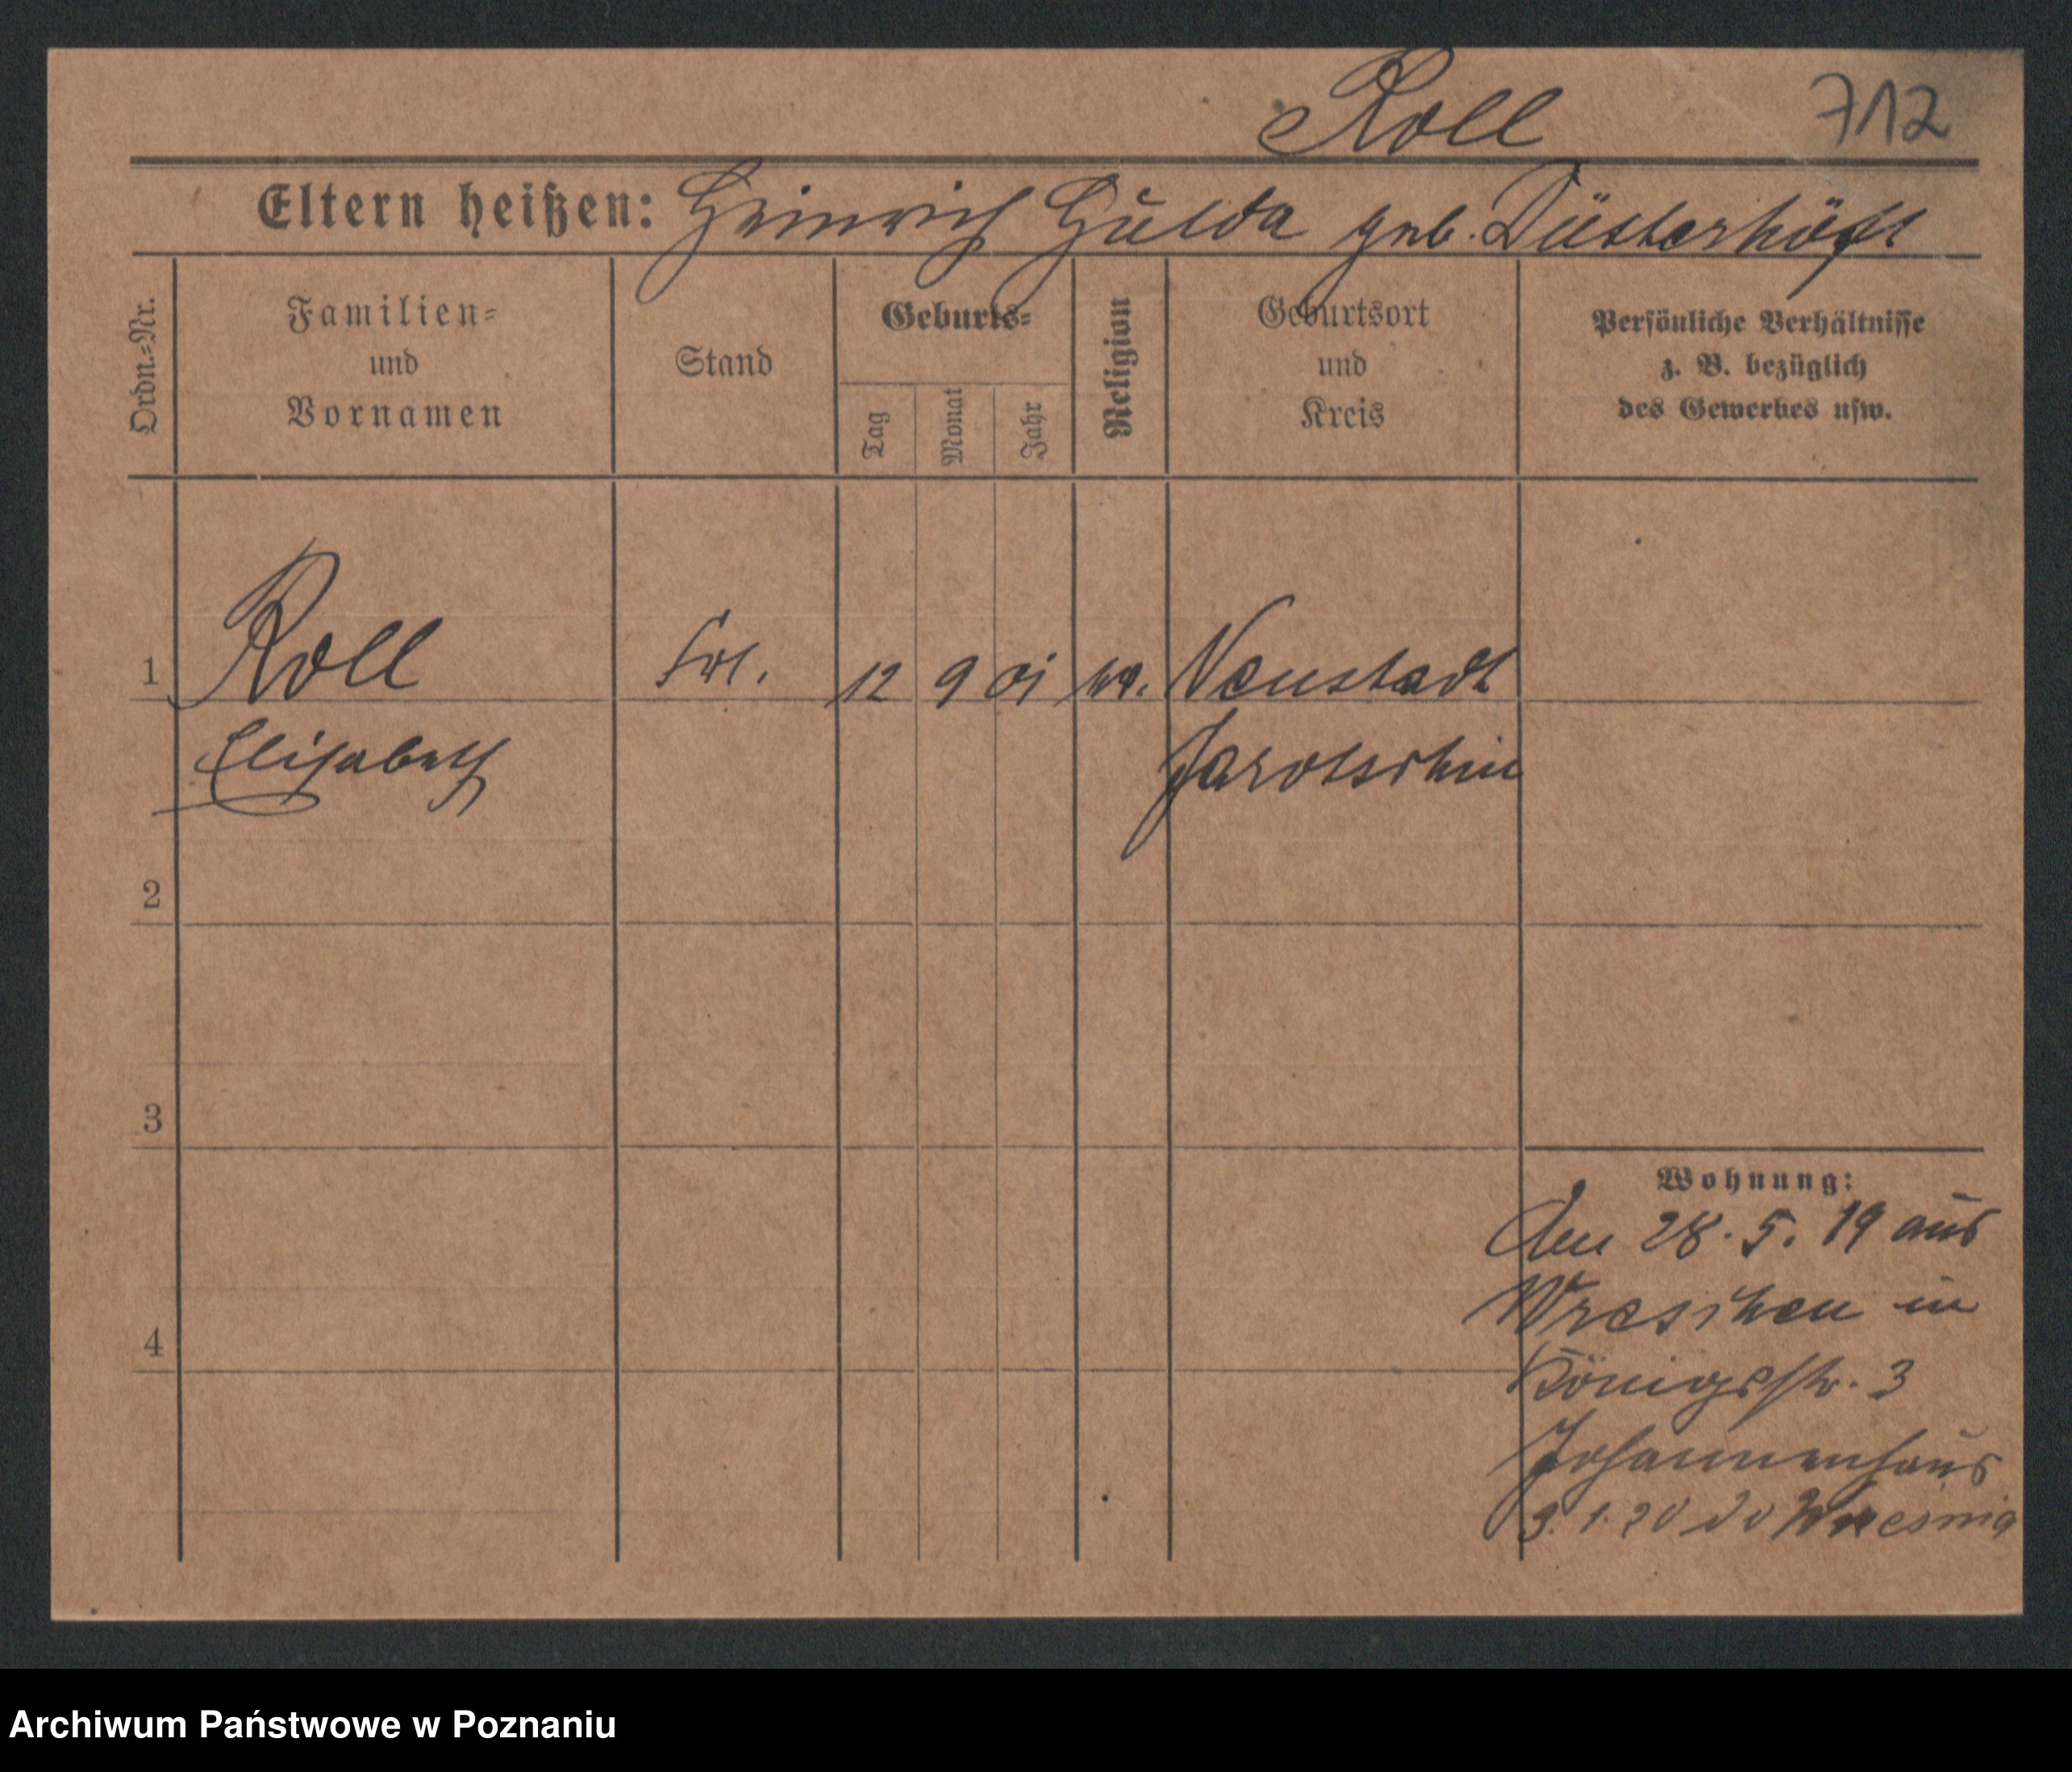 Roll 712
Eltern heißen: Heinrich Hulda geb. Düsterhöft
Ordn.-Nr.
Familien-
und
Vornamen
Stand
Geburts-
Tag
Monat
Jahr
Religion
Geburtsort
und
Kreis
Persönliche Verhältnisse
z. B. bezüglich
des Gewerbes usw.
1 Roll Frl. 12 9 01 Neustadt
Elisabeth Jarotschin
2
3
4
Wohnung:
Am 28. 5. 19 aus
Wreschen in
Königsstr. 3
Johannenhaus
3. 1. 20 do
Archiwum Państwowe w Poznaniu